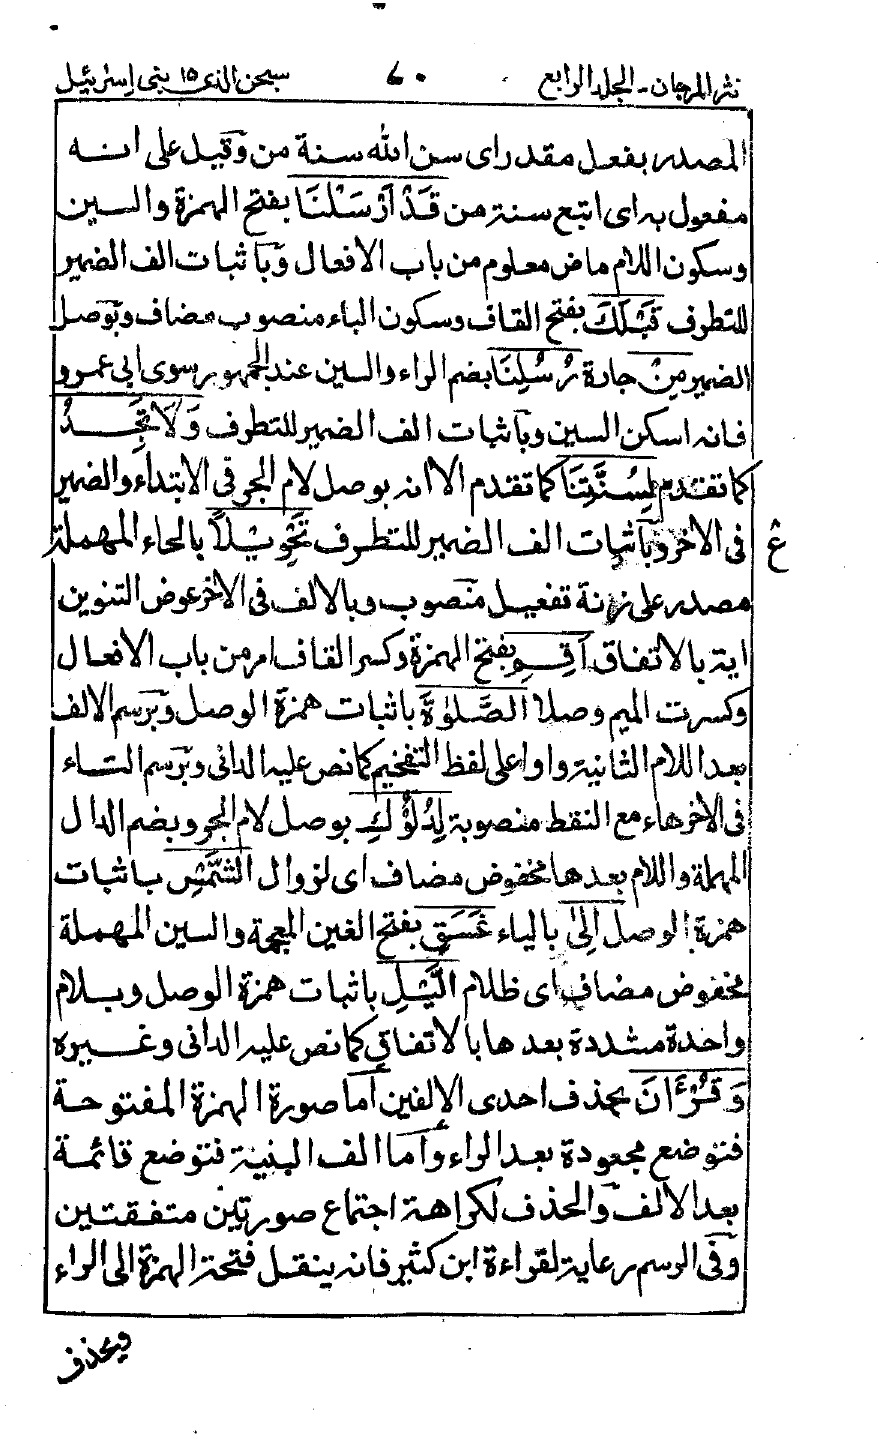 نثر المرجان - الجلد الرابع ٦٠ سبحن الذى ١٥ بنى إسرئيل
المصدر بفعل مقدر اى سن الله سنة من وقيل على انه
مفعول به اى اتبع سنة من قَدْ اَرْسَلْنَا بفتح الهمزة والسين
وسكون اللام ماض معلوم من باب الافعال وباثبات الف الضمير
للتطرف قَبْلَكَ بفتح القاف وسكون الباء منصوب مضاف وبوصل
الضمير مِنْ جارة رُسُلِنَا بضم الراء والسين عند الجمهور سوى ابى عمرو
فانه اسكن السين وباثبات الف الضمير للتطرف وَلَا تَجِدُ
كما تقدم لِسُنَّتِنَا كما تقدم الا انه بوصل لام الجر فى الابتداء والضمير
فى الاخر وباثبات الف الضمير للتطرف تَحْوِيْلًا بالحاء المهملة
ع
مصدر على زنة تفعيل منصوب وبالالف فى الاخر عوض التنوين
اية بالاتفاق اَقِمِ بفتح الهمزة وكسر القاف امر من باب الافعال
وكسرت الميم وصلا الصَّلٰوةَ باثبات همزة الوصل وبرسم الالف
بعد اللام الثانية واوا على لفظ التفخيم كما نص عليه الدانى وبرسم التاء
فى الاخر هاء مع النقط منصوبة لِدُلُوْكِ بوصل لام الجر وبضم الدال
المهملة واللام بعدها مخفوض مضاف اى لزوال الشَّمْسِ باثبات
همزة الوصل اِلٰى بالياء غَسَقِ بفتح الغين المعجمة والسين المهملة
مخفوض مضاف اى ظلام الَّيْلِ باثبات همزة الوصل وبلام
واحدة مشددة بعدها بالاتفاق كما نص عليه الدانى وغيره
وَقُرْءَانَ بحذف احدى الالفين اما صورة الهمزة المفتوحة
فتوضع مجعودة بعد الراء واما الف البنية فتوضع قائمة
بعد الالف والحذف لكراهة اجتماع صورتين متفقتين
وفى الرسم رعاية لقراءة ابن كثير فانه ينقل فتحة الهمزة الى الراء
ويحذف